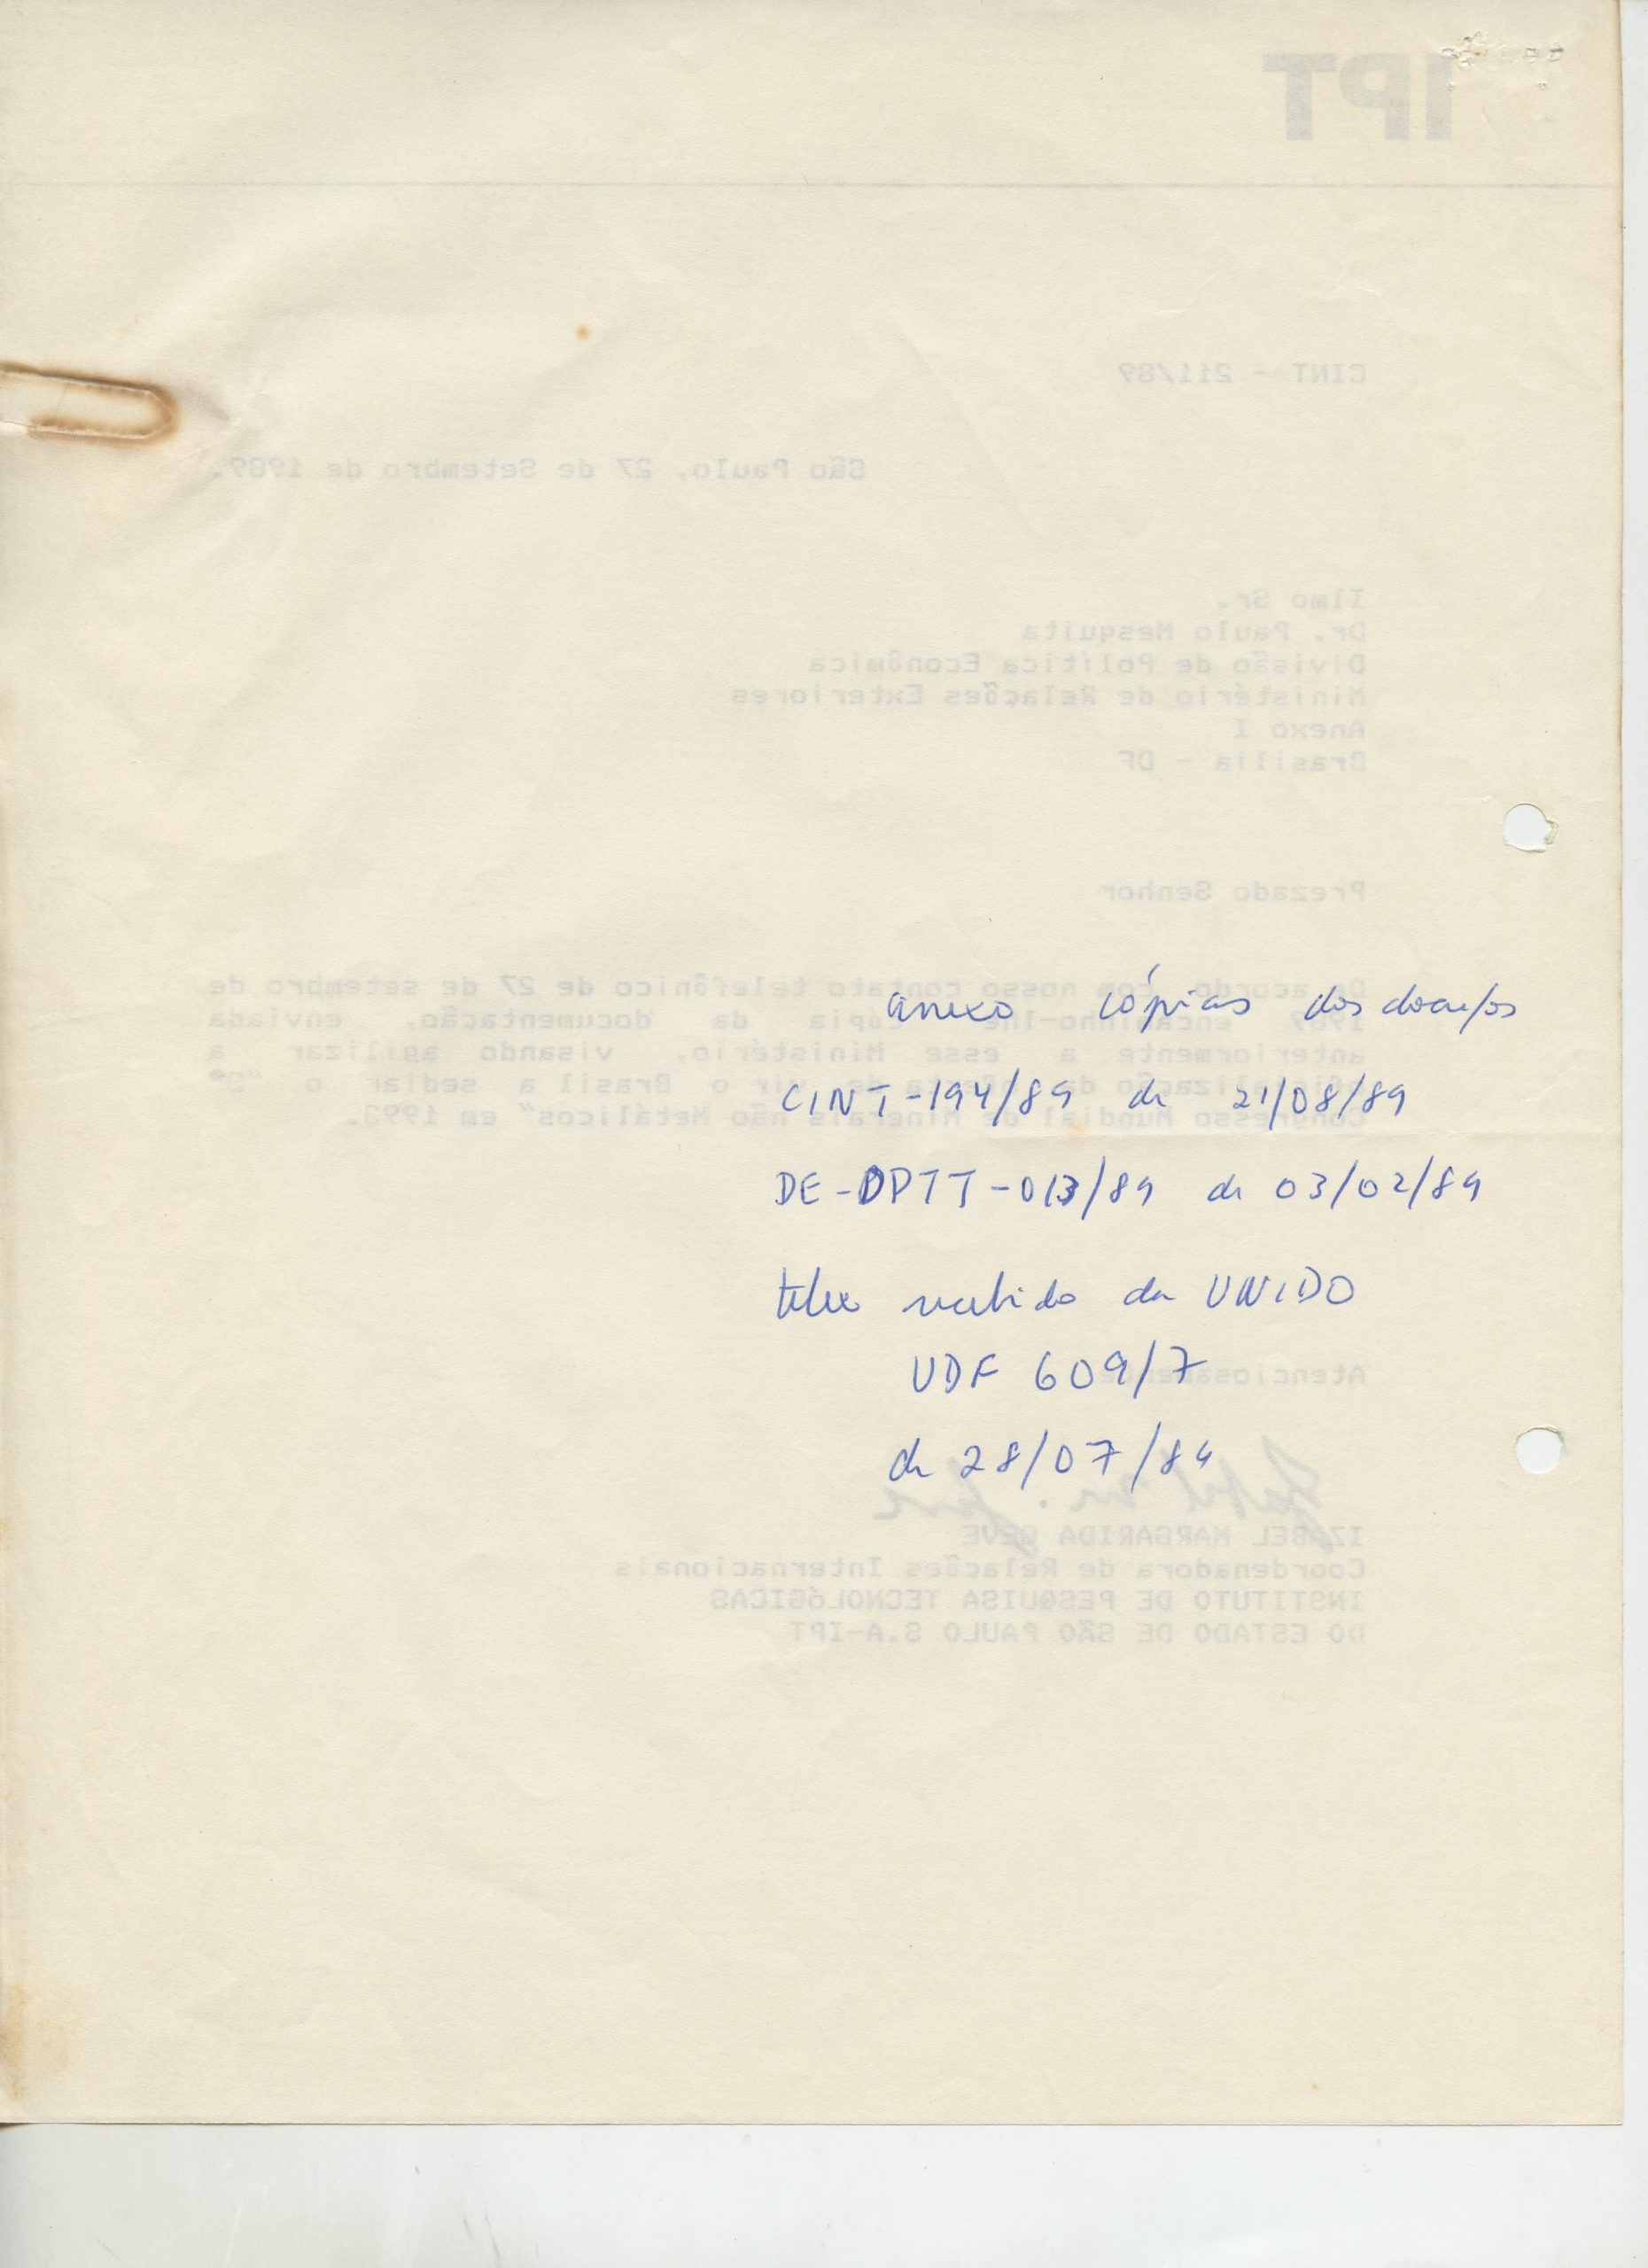 IPT
CINT - 211/89
São Paulo, 27 de Setembro de 1989.
Ilmo Sr.
Dr. Paulo Mesquita
Divisão de Política Econômica
Ministério de Relações Exteriores
Anexo I
Brasília - DF
Prezado Senhor
De acordo com nosso contato telefônico de 27 de setembro de
1989 encaminho-lhe cópia da documentação, enviada
anteriormente a esse Ministério, visando agilizar a
oficialização da oferta de vir o Brasil a sediar o "5º
Congresso Mundial de Minerais não Metálicos" em 1993.
anexo cópias dos
CINT-194/89 de 21/08/89
DE-DPTT-013/89 de 03/02/89
telex recebido da UNIDO
UDF 609/7
de 28/07/89
Atenciosamente
IZABEL MARGARIDA GEVE
Coordenadora de Relações Internacionais
INSTITUTO DE PESQUISA TECNOLÓGICAS
DO ESTADO DE SÃO PAULO S.A-IPT